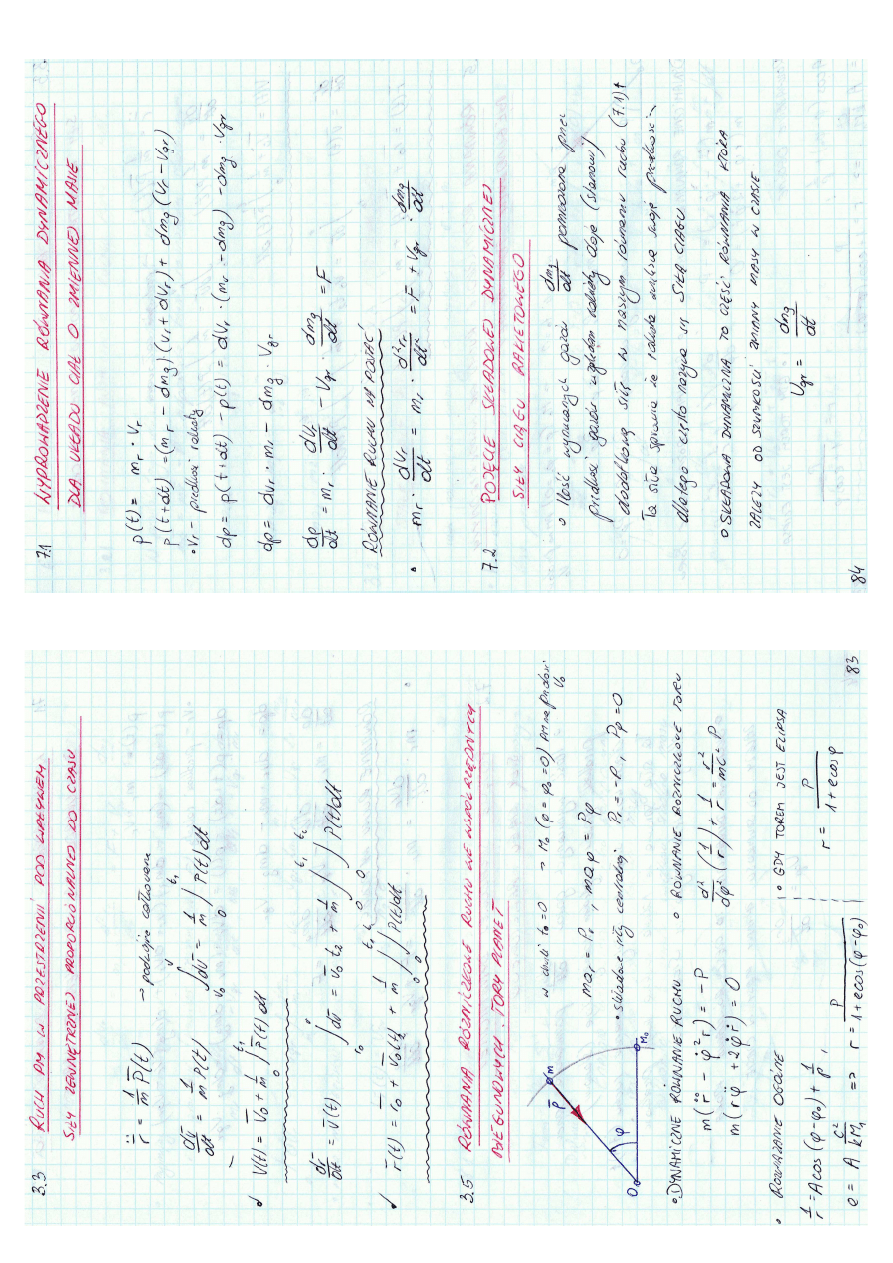 3.3 RUCH PM W PRZESTRZENI POD WPŁYWEM
SIŁY ZEWNĘTRZNEJ PROPORCJONALNEJ DO CZASU
r̈ = 1/m P̄(t) → podwójne całkowanie
dv̄/dt = 1/m P(t) ∫dv̄ = 1/m ∫ P(t)dt
V(t) = V̄0 + 1/m ∫ P(t)dt
dr̄/dt = v̄(t) ∫dū = v̄0 t2 + 1/m ∫∫ P(t)dt
r̄(t) = r̄0 + v̄0(t) + 1/m ∫∫ P(t)dt
3.5 RÓWNANIA RÓŻNICZKOWE RUCHU WE WSPÓŁRZĘDNYCH
BIEGUNOWYCH. TORY PLANET
P̄ m
φ
O M0
w chwili t0=0 → M0 (φ=φ0=0) PM ma prędkość V0
mar = Pr, maφ = Pφ
• składowe siły centralnej Pr = -P, Pφ = 0
• DYNAMICZNE RÓWNANIE RUCHU
m(r̈ - φ̇² r) = -P
m(rφ̈ + 2φ̇ṙ) = 0
• RÓWNANIE RÓŻNICZKOWE TORU
d²/dφ² (1/r) + 1/r = r²/mC² P
• ROZWIĄZANIE OGÓLNE
1/r = A cos(φ-φ0) + 1/P,
e = A C²/kM1 => r = P/1+ecos(φ-φ0)
• GDY TOREM JEST ELIPSA
r = P/1+ecosφ
83
7.1 WYPROWADZENIE RÓWNANIA DYNAMICZNEGO
DLA UKŁADU CIAŁ O ZMIENNEJ MASIE
p(t) = mr · Vr
p(t+dt) = (mr - dmg)(Vr + dVr) + dmg (Vr - Vgr)
• Vr - prędkość rakiety
dp = p(t+dt) - p(t) = dVr · (mr - dmg) - dmg · Vgr
dp = dvr · mr - dmg · Vgr
dp/dt = mr · dVr/dt - Vgr · dmg/dt = F
RÓWNANIE RUCHU MA POSTAĆ
• mr · dVr/dt = mr · d²r/dt² = F + Vgr · dmg/dt
7.2 POJĘCIE SKŁADOWEJ DYNAMICZNEJ
SIŁY CIĄGU RAKIETOWEGO
• Ilość wyrzucanych gazów dmg/dt pomnożona przez
prędkość gazów względem rakiety daje (stanowi)
dodatkową siłę w naszym równaniu ruchu (7.1)
Ta siła sprawia że rakieta zwiększa swoją prędkość
dlatego często nazywa się SIŁĄ CIĄGU
• SKŁADOWA DYNAMICZNA TO CZĘŚĆ RÓWNANIA KTÓRA
ZALEŻY OD SZYBKOŚCI ZMIANY MASY W CZASIE
Vgr = dmg/dt
84